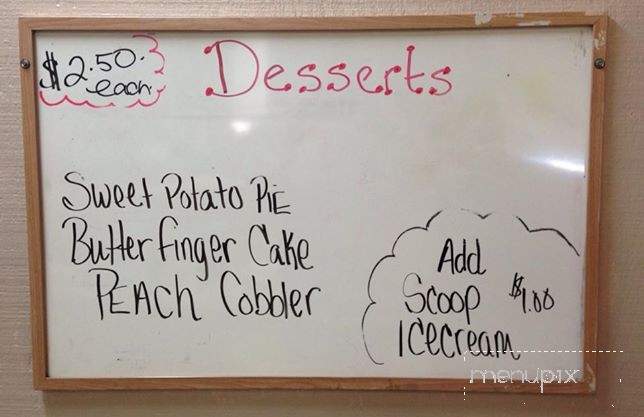 $2.50.
each.
Desserts
Sweet Potato PiE
Butterfinger Cake
PEACH Cobbler
Add
Scoop $1.00
Icecream
menupix